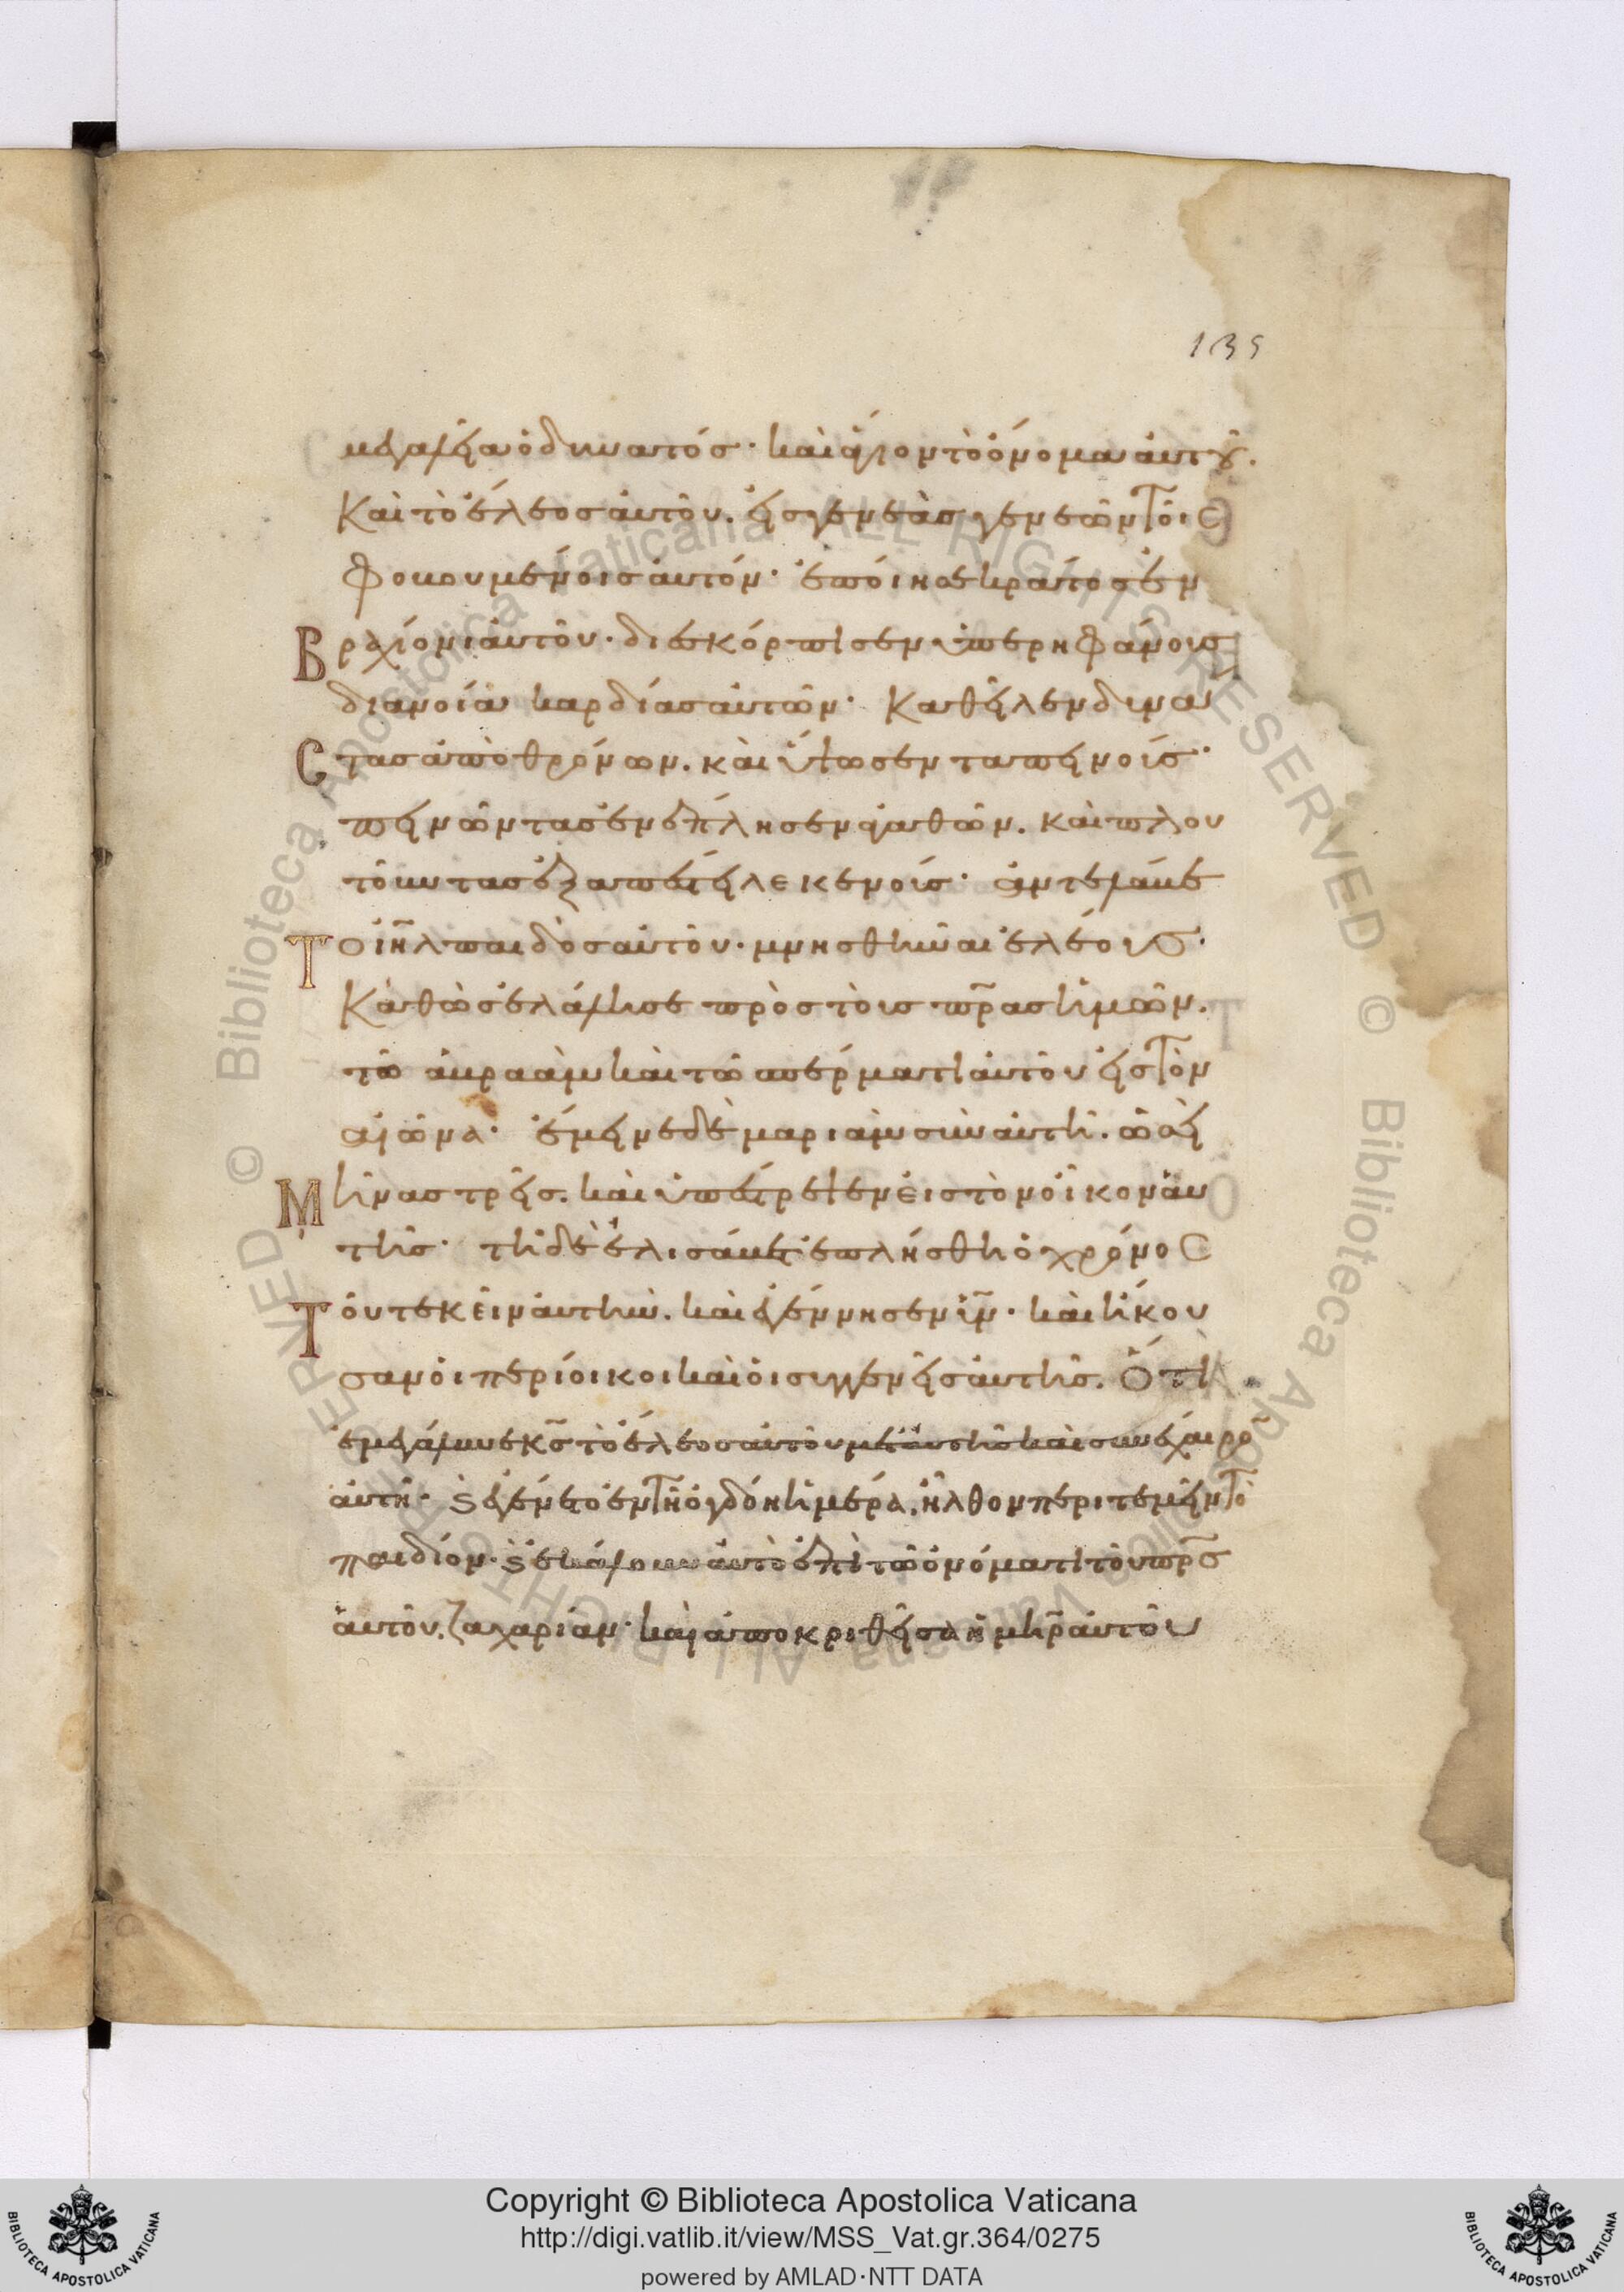 135
μεγαλεῖα ὁ δυνατός· καὶ ἅγιον τὸ ὄνομα αὐτοῦ.
Καὶ τὸ ἔλεος αὐτοῦ. εἰς γενεὰς γενεῶν τοῖς
φοβουμένοις αὐτόν· ἐποίησε κράτος ἐν
Βραχίονι αὐτοῦ· διεσκόρπισεν ὑπερηφάνους
διανοίᾳ καρδίας αὐτῶν· Καθεῖλεν δυνά
Cτας ἀπὸ θρόνων. καὶ ὕψωσεν ταπεινούς·
πεινῶντας ἐνέπλησεν ἀγαθῶν. καὶ πλου
τοῦντας ἐξαπέστειλε κενούς· ἀντελάβε
Το ιηλ παιδὸς αὐτοῦ· μνησθῆναι ἐλέους·
Καθὼς ἐλάλησε πρὸς τοὺς πρας ἡμῶν.
τῶ ἀβραὰμ καὶ τῶ σπέρματι αὐτοῦ εἰς τὸν
αἰῶνα· ἔμεινε δὲ μαριὰμ σὺν αὐτῆ. ὡσεὶ
Μῆνας τρεῖς. καὶ ὑπέστρεψεν εἰς τὸν οἶκον αὐ
τῆς· τῆ δὲ ἐλισάβετ ἐπλήσθη ὁ χρόνος
Τοῦ τεκεῖν αὐτήν. καὶ ἐγέννησεν υν· καὶ ἤκου
σαν οἱ περίοικοι καὶ οἱ συγγενεῖς αὐτῆς. Ὅτι
ἐμεγάλυνε κς τὸ ἔλεος αὐτοῦ μετ' αὐτῆς καὶ συνέχαιρο
αὐτῆ· ϗ ἐγένετο ἐν τῆ ὀγδόη ἡμέρα. ἦλθον περιτεμεῖν τὸ
παιδίον· ϗ ἐκάλουν αὐτὸ ἐπὶ τῶ ὀνόματι τοῦ πρς
αὐτοῦ. ζαχαρίαν· καὶ ἀποκριθεῖσα ἡ μηρ αὐτοῦ
Copyright © Biblioteca Apostolica Vaticana
http://digi.vatlib.it/view/MSS_Vat.gr.364/0275
powered by AMLAD·NTT DATA
BIBLIOTECA APOSTOLICA VATICANA
BIBLIOTECA APOSTOLICA VATICANA
© Biblioteca Apostolica Vaticana ALL RIGHTS RESERVED © Biblioteca Apostolica Vaticana ALL RIGHTS RESERVED